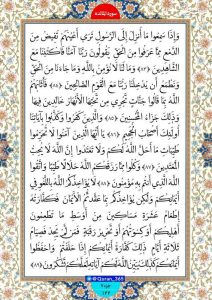 سورة المائدة
وَإِذَا سَمِعُوا مَا أُنْزِلَ إِلَى الرَّسُولِ تَرَى أَعْيُنَهُمْ تَفِيضُ مِنَ
الدَّمْعِ مِمَّا عَرَفُوا مِنَ الْحَقِّ يَقُولُونَ رَبَّنَا آمَنَّا فَاكْتُبْنَا مَعَ
الشَّاهِدِينَ ﴿٨٣﴾ وَمَا لَنَا لَا نُؤْمِنُ بِاللَّهِ وَمَا جَاءَنَا مِنَ الْحَقِّ
وَنَطْمَعُ أَنْ يُدْخِلَنَا رَبُّنَا مَعَ الْقَوْمِ الصَّالِحِينَ ﴿٨٤﴾ فَأَثَابَهُمُ
اللَّهُ بِمَا قَالُوا جَنَّاتٍ تَجْرِي مِنْ تَحْتِهَا الْأَنْهَارُ خَالِدِينَ فِيهَا
وَذَلِكَ جَزَاءُ الْمُحْسِنِينَ ﴿٨٥﴾ وَالَّذِينَ كَفَرُوا وَكَذَّبُوا بِآيَاتِنَا
أُولَئِكَ أَصْحَابُ الْجَحِيمِ ﴿٨٦﴾ يَا أَيُّهَا الَّذِينَ آمَنُوا لَا تُحَرِّمُوا
طَيِّبَاتِ مَا أَحَلَّ اللَّهُ لَكُمْ وَلَا تَعْتَدُوا إِنَّ اللَّهَ لَا يُحِبُّ
الْمُعْتَدِينَ ﴿٨٧﴾ وَكُلُوا مِمَّا رَزَقَكُمُ اللَّهُ حَلَالًا طَيِّبًا وَاتَّقُوا
اللَّهَ الَّذِي أَنْتُمْ بِهِ مُؤْمِنُونَ ﴿٨٨﴾ لَا يُؤَاخِذُكُمُ اللَّهُ بِاللَّغْوِ فِي
أَيْمَانِكُمْ وَلَكِنْ يُؤَاخِذُكُمْ بِمَا عَقَّدْتُمُ الْأَيْمَانَ فَكَفَّارَتُهُ
إِطْعَامُ عَشَرَةِ مَسَاكِينَ مِنْ أَوْسَطِ مَا تُطْعِمُونَ
أَهْلِيكُمْ أَوْ كِسْوَتُهُمْ أَوْ تَحْرِيرُ رَقَبَةٍ فَمَنْ لَمْ يَجِدْ فَصِيَامُ
ثَلَاثَةِ أَيَّامٍ ذَلِكَ كَفَّارَةُ أَيْمَانِكُمْ إِذَا حَلَفْتُمْ وَاحْفَظُوا
أَيْمَانَكُمْ كَذَلِكَ يُبَيِّنُ اللَّهُ لَكُمْ آيَاتِهِ لَعَلَّكُمْ تَشْكُرُونَ ﴿٨٩﴾
@Quran_365
جزء ۷
۱۲۲